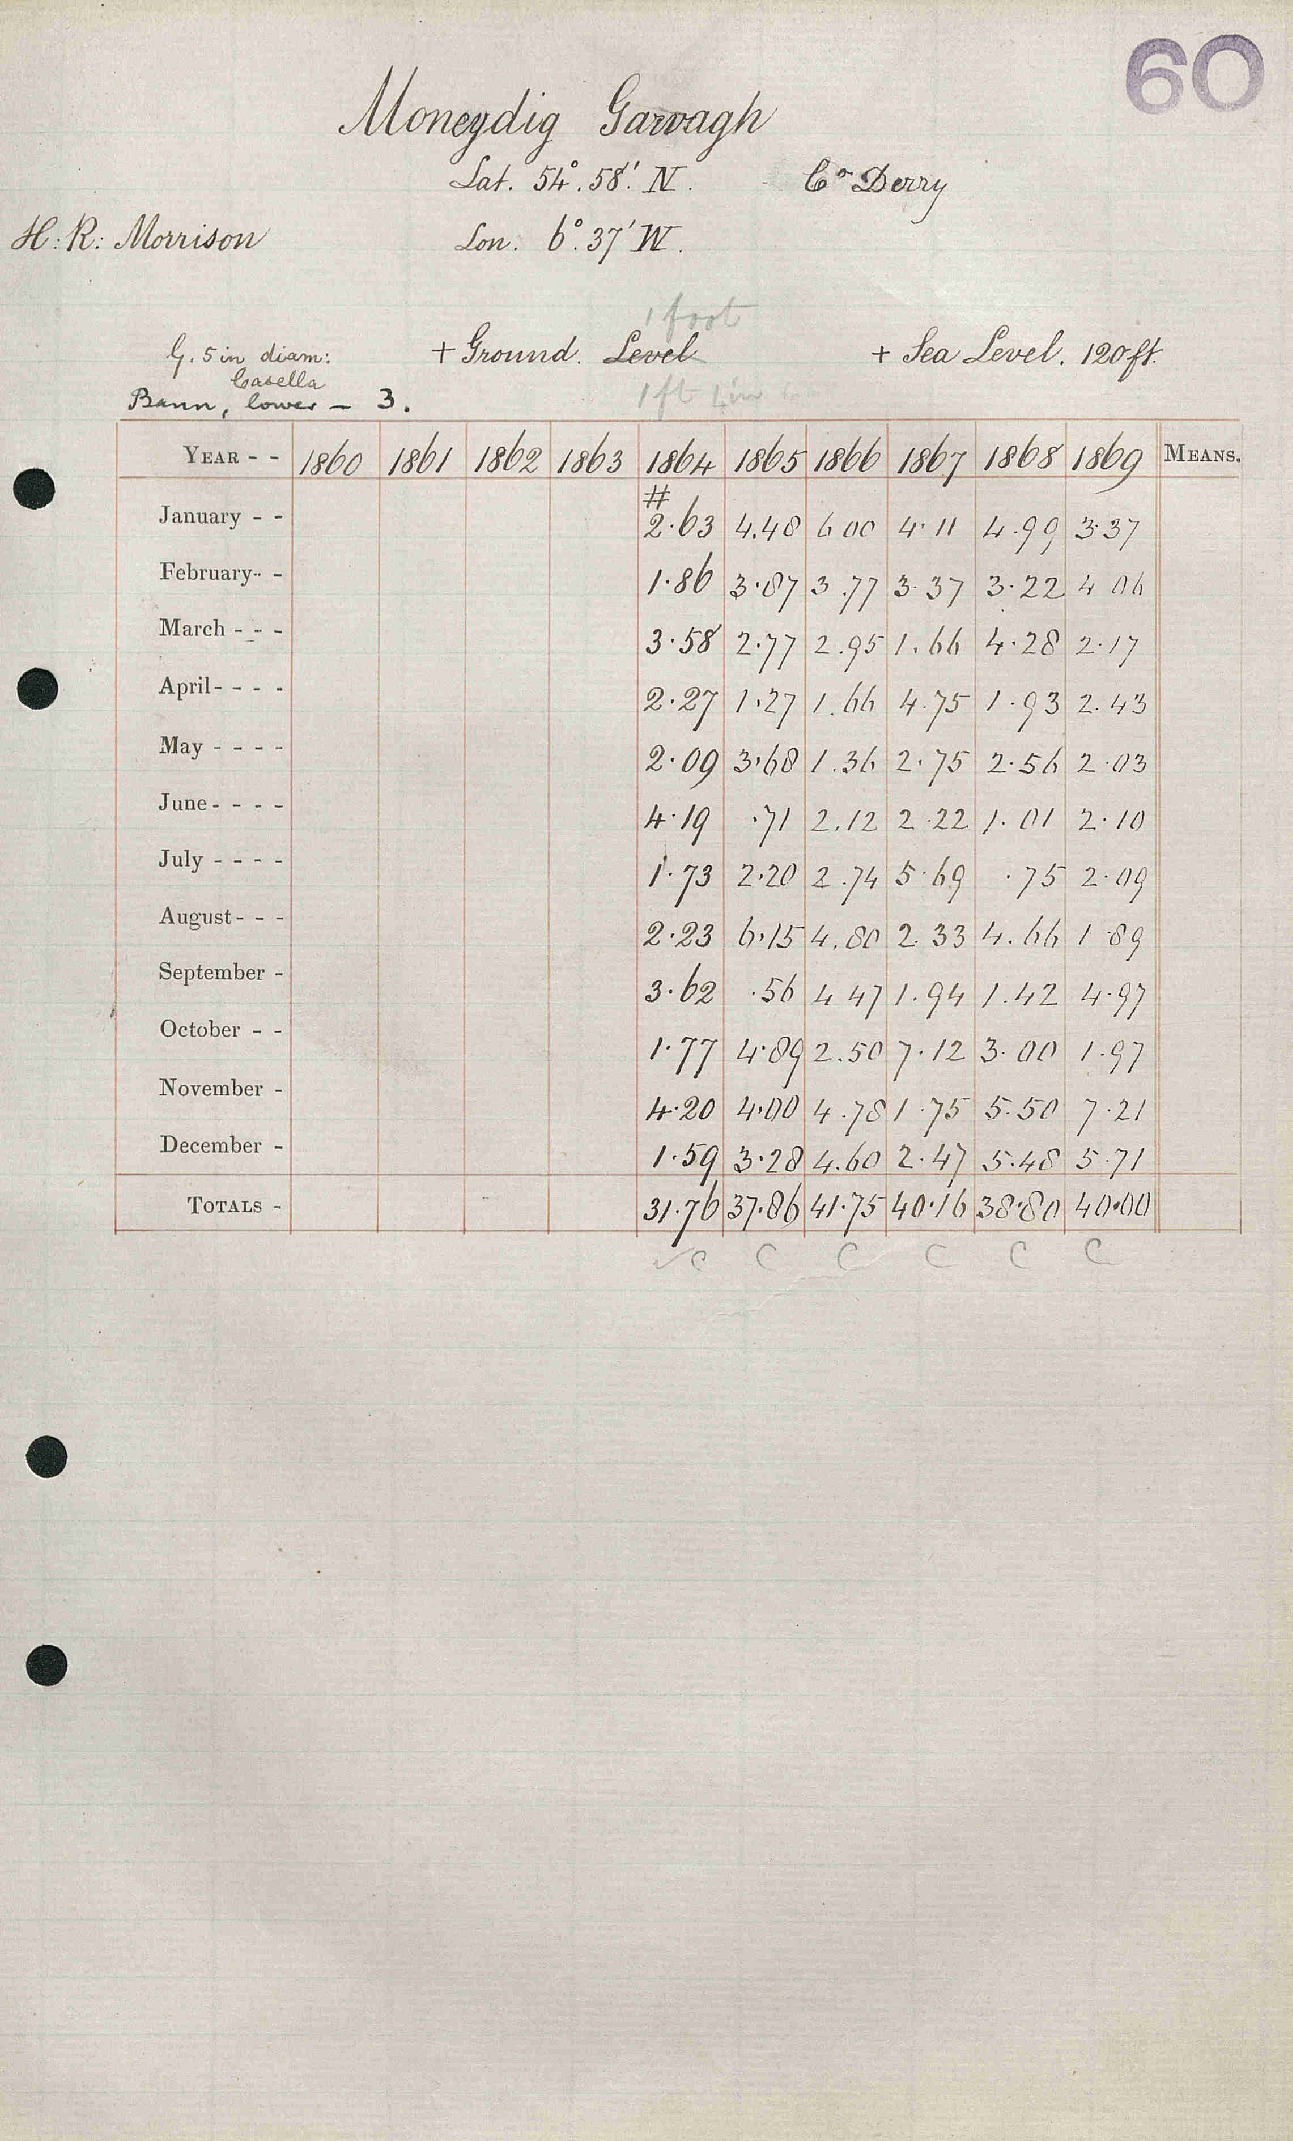 60
Moneydig Garvagh
Lat. 54°. 58'. N. Co Derry
H: R: Morrison Lon: 6°. 37' W.
1 foot
G. 5 in diam: + Ground. Level + Sea Level. 120 ft.
Casella
Bann, lower — 3. 1 ft 4 in
YEAR - - 1860 1861 1862 1863 1864 1865 1866 1867 1868 1869 MEANS.
#
January - - 2.63 4.48 6 00 4.11 4.99 3.37
February - - 1.86 3.87 3.77 3.37 3.22 4 06
March - - - 3.58 2.77 2.95 1.66 4.28 2.17
April - - - - 2.27 1.27 1.66 4.75 1.93 2.43
May - - - - 2.09 3.68 1.36 2.75 2.56 2.03
June - - - - 4.19 .71 2.12 2.22 1.01 2.10
July - - - - 1.73 2.20 2.74 5.69 .75 2.09
August - - - 2.23 6.15 4.80 2.33 4.66 1 89
September - 3.62 .56 4 47 1.94 1.42 4.97
October - - 1.77 4.89 2.50 7.12 3.00 1.97
November - 4.20 4.00 4.78 1.75 5.50 7.21
December - 1.59 3.28 4.60 2.47 5.48 5.71
TOTALS - 31.76 37.86 41.75 40.16 38.80 40.00
✓c C C C C C